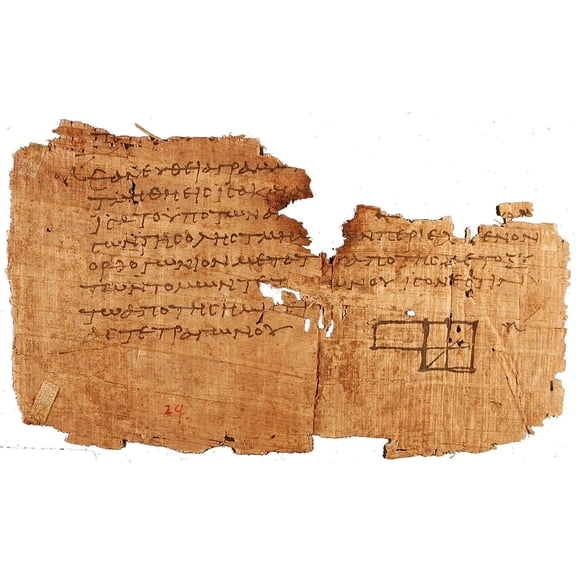 ΕΑΝΕΥΘΕΙΑΓΡΑΜΜ
ΤΜΗΘΗΕΙϹΙϹΑΚΑΙΑ
ΙϹΑΤΟΥΠΟΤΩΝΑ
ϹΩΝΤΗϹΟΛΗϹΤΜΗ ΩΝΠΕΡΙΕΧΟΜΕΝΟΝ
ΟΡΘΟΓΩΝΙΟΝΜΕΤΑΤΟ ΑΠΟΤΗϹΜΕΤΟΞΥ
ΤΩΝΤΟΜΩΝΤΕΤ ΩΝΟΥΙϹΟΝΕϹΤΙΝ
ΤΩΑΠΟΤΗϹΗΜΙϹΕΙ
ΑϹΤΕΤΡΑΓΩΝΟΥ
29.